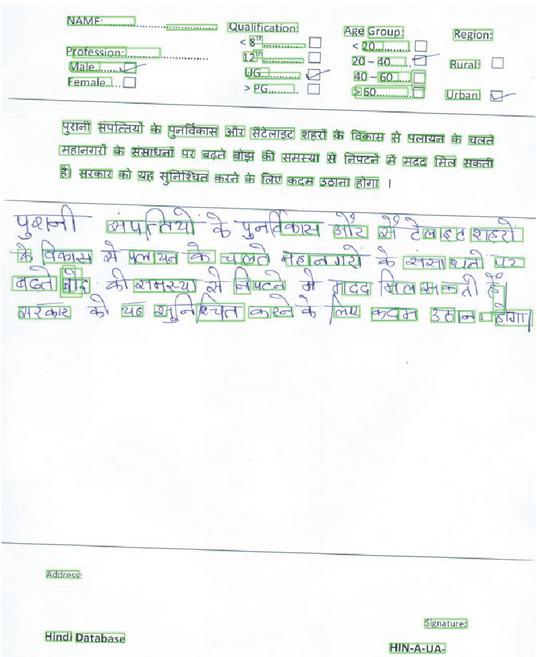 NAME:
Profession:
Male
Female
Qualification
< 8th
12th
UG
> PG
Age Group:
< 20
20 – 40
40 – 60
> 60
Region:
Rural
Urban
पुरानी संपत्तियों के पुनर्विकास और सैटेलाइट शहरों के विकास से पलायन के चलते
महानगरों के संसाधनों पर बढ़ते बोझ की समस्या से निपटने में मदद मिल सकती
है। सरकार को यह सुनिश्चित करने के लिए कदम उठाना होगा ।
पुरानी संपत्तियों के पुनर्विकास और सैटेलाइट शहरों
के विकास से पलायन के चलते महानगरों के संसाधनों पर
बढ़ते बोझ की समस्या से निपटने में मदद मिल सकती है।
सरकार को यह सुनिश्चित करने के लिए कदम उठाना होगा।
Address:
Signature:
Hindi Database
HIN-A-UA-